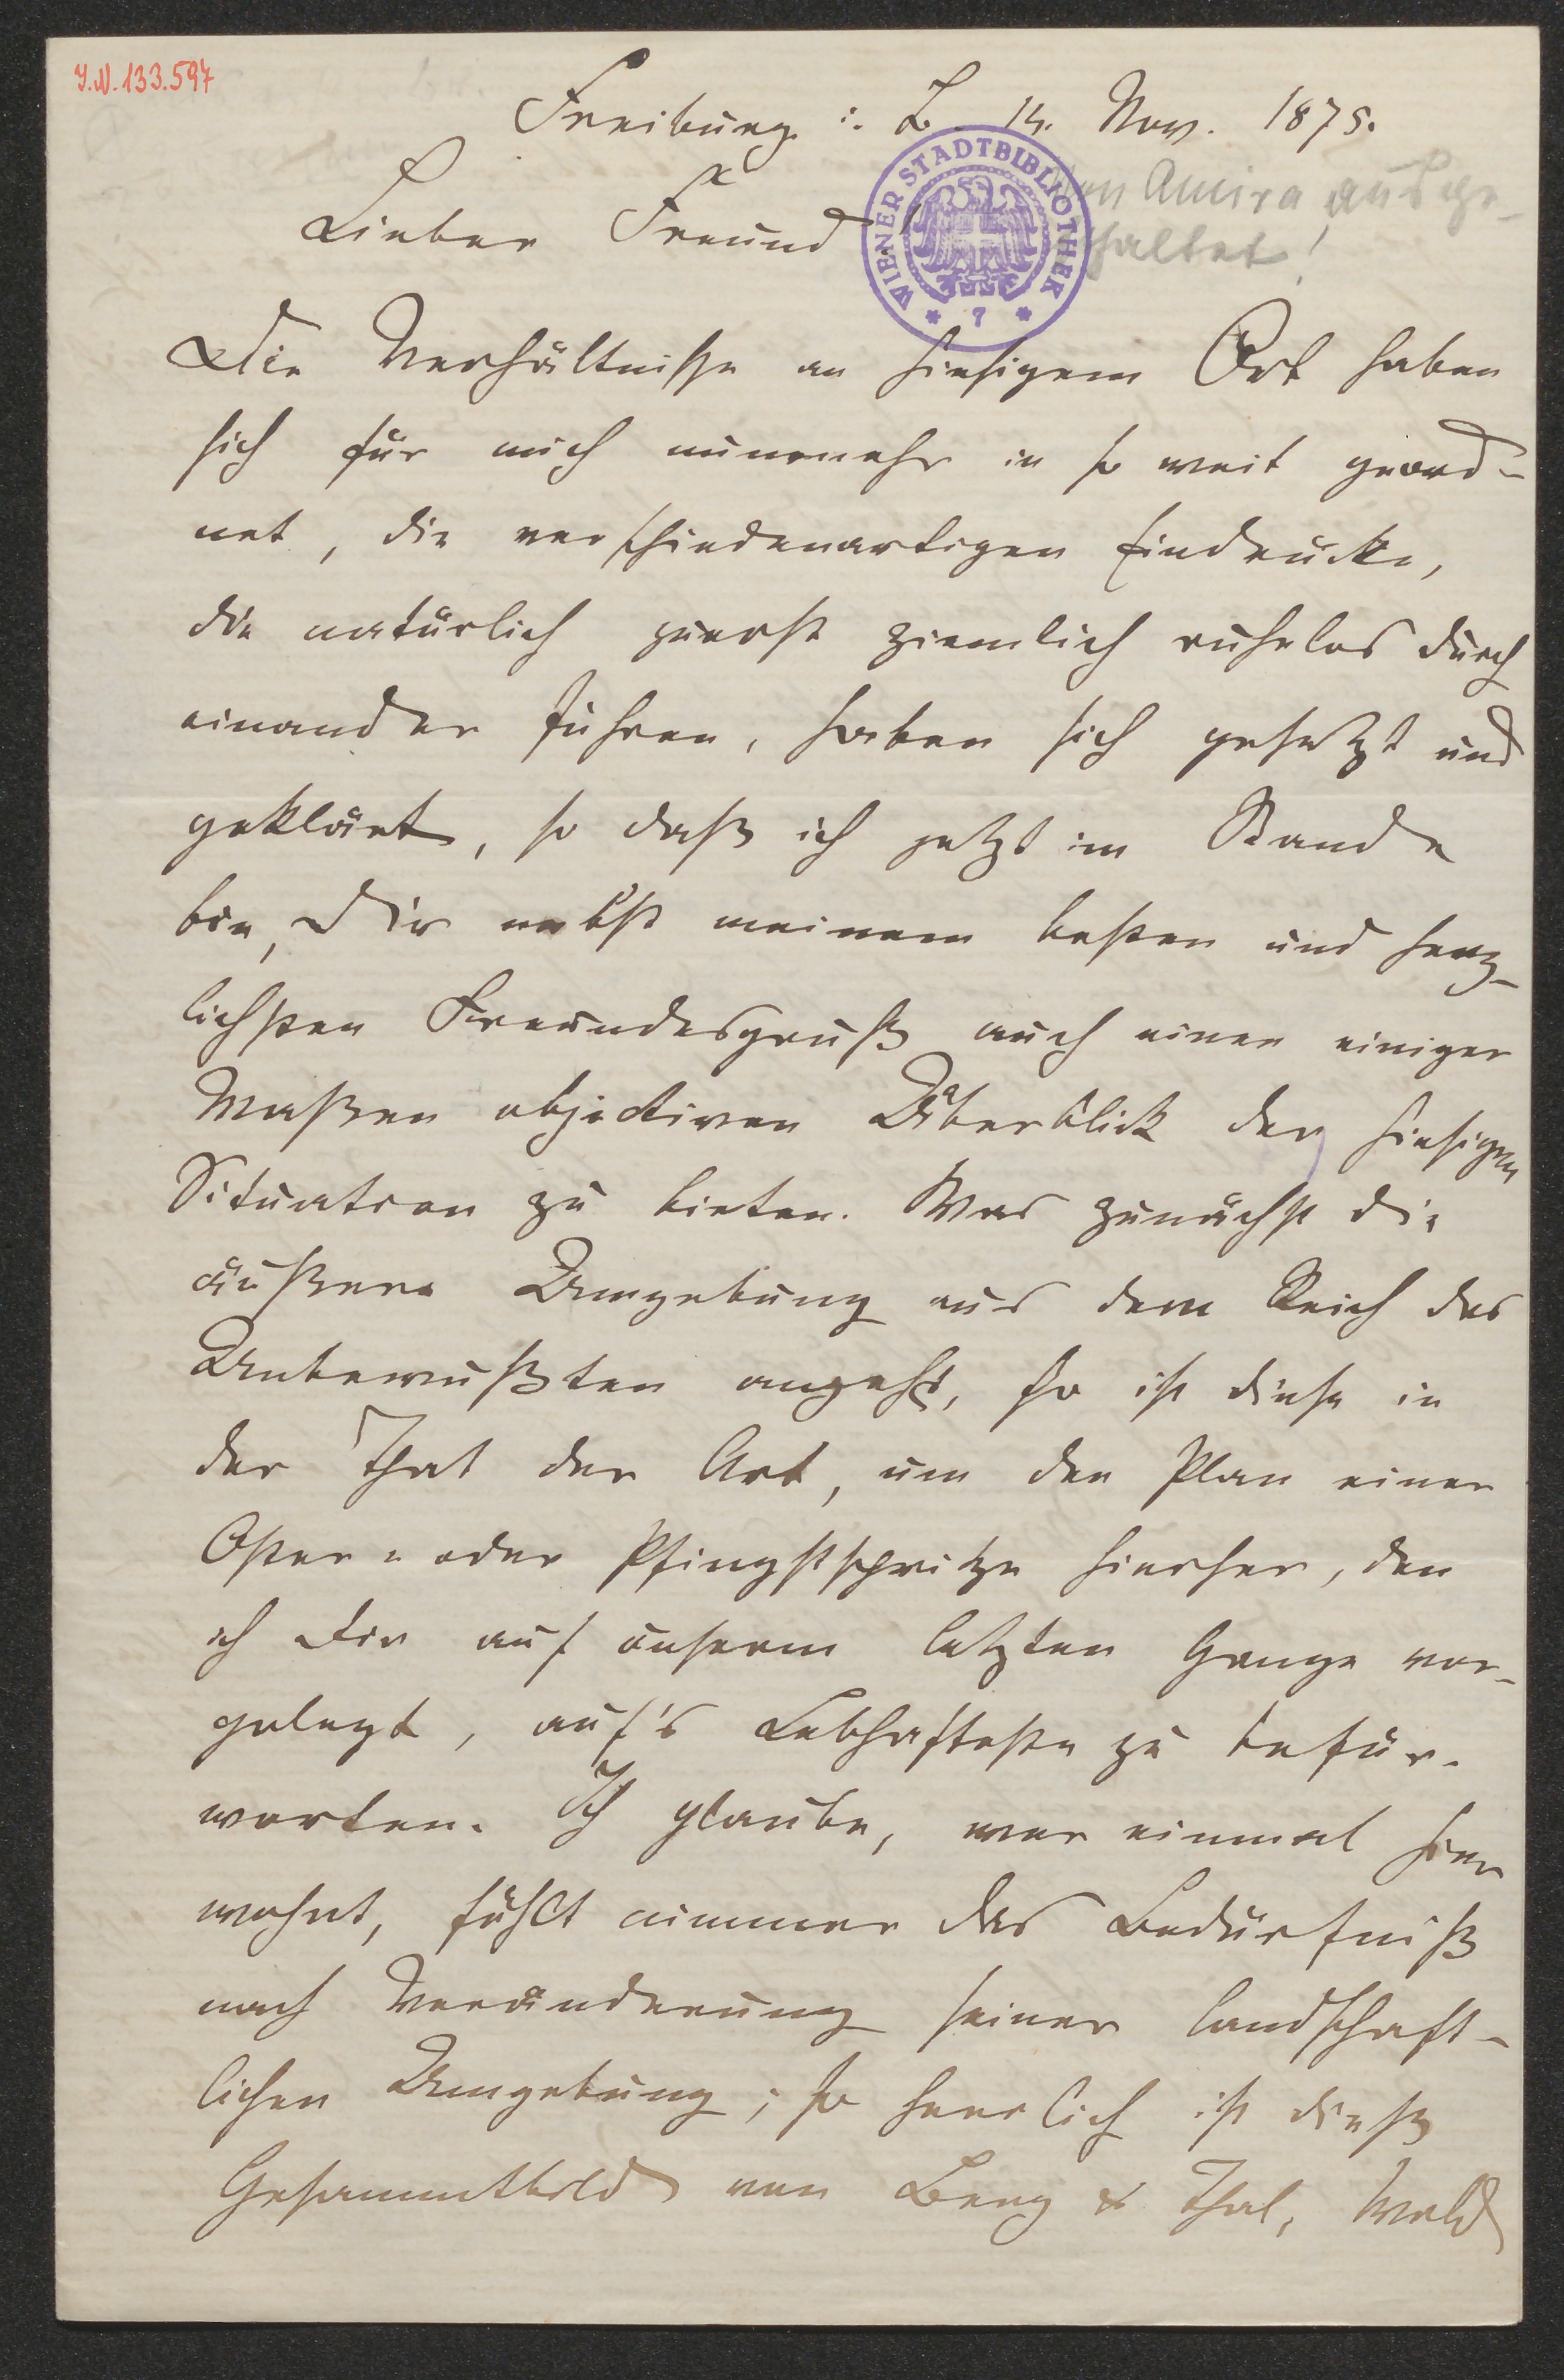 J.N. 133.597
Freiburg i. B. 14. Nov. 1875.
Lieber Freund!
von Amira ausge-
haltet!
WIENER STADTBIBLIOTHEK
* 7 *
Die Verhältnisse an hiesigem Ort haben
sich für mich nunmehr in so weit geord-
net, die verschiedenartigen Eindrücke,
die natürlich zuerst ziemlich ruhelos durch
einander fuhren, haben sich gesetzt und
geklärt, so daß ich jetzt im Stande
bin, Dir nebst meinem besten und herz-
lichsten Freundesgruß auch einen einiger
Maßen objectiven Überblick der hiesigen
Situation zu bieten. Was zunächst die
äußere Umgebung aus dem Reich des
Unbewußten angeht, so ist diese in
der That der Art, um den Plan einer
Oster- oder Pfingstspritze hierher, den
ich Dir auf unserm letzten Gange vor-
gelegt, auf's Lebhafteste zu befür-
worten. Ich glaube, wer einmal hier
wohnt, fühlt nimmer das Bedürfniß
nach Veränderung seiner landschaft-
lichen Umgebung; so herrlich ist dieß
Gesammtbild von Berg & Thal, Wald